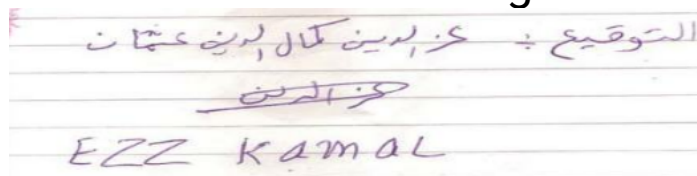 التوقيع : عز الدين كمال الدين عثمان
عز الدين
EZZ KAMAL